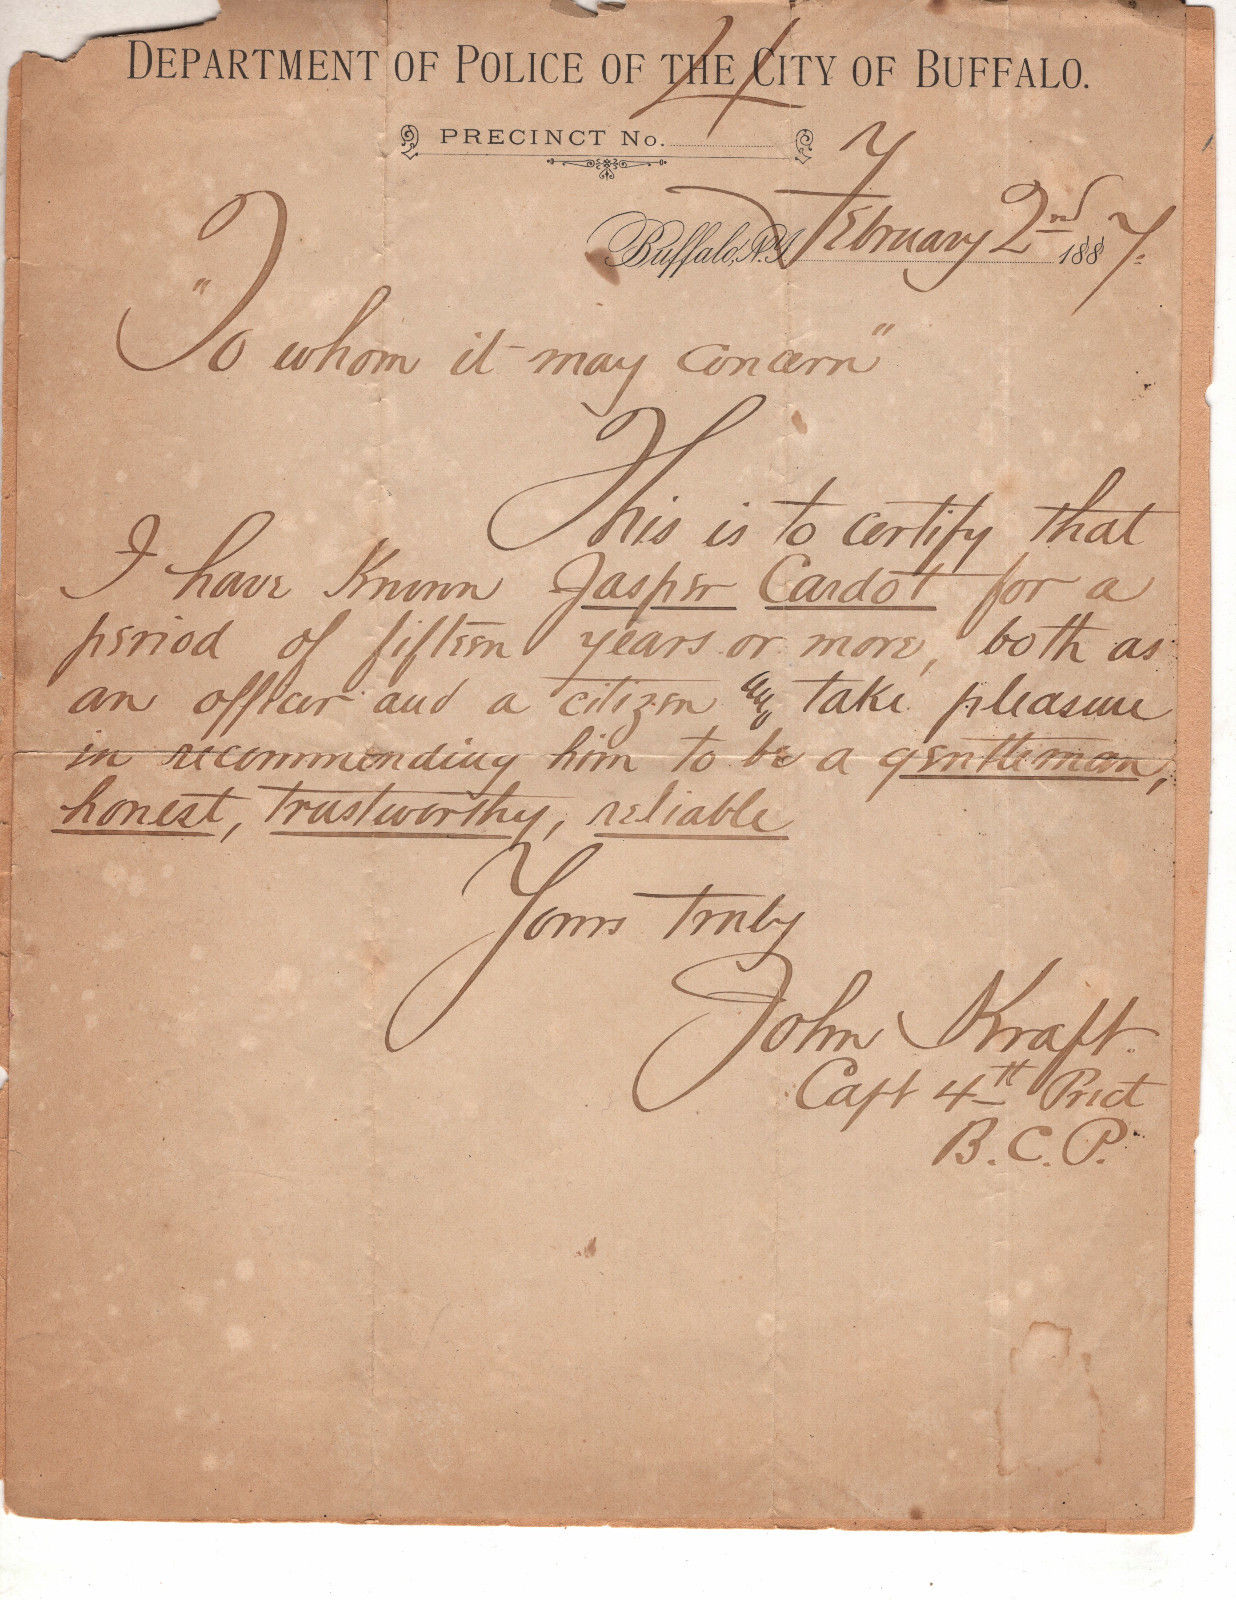 DEPARTMENT OF POLICE OF THE CITY OF BUFFALO.
PRECINCT No. 4
Buffalo, N.Y. February 2nd 1887.
"To whom it may concern"
This is to certify that
I have Known Jasper Cardot for a
period of fifteen years or more, both as
an officer and a citizen take pleasure
in recommending him to be a gentleman,
honest, trustworthy, reliable
Yours truly
John Kraft.
Capt 4th Prict
B.C.P.